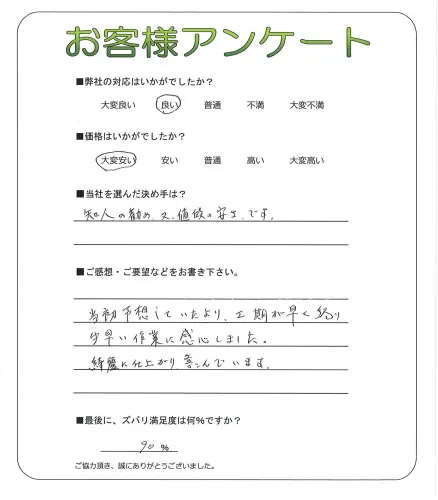 お客様アンケート
■弊社の対応はいかがでしたか?
大変良い 良い 普通 不満 大変不満
■価格はいかがでしたか?
大変安い 安い 普通 高い 大変高い
■当社を選んだ決め手は?
知人の勧め、又、値段の安さです。
■ご感想・ご要望などをお書き下さい。
当初予想していたより、工期が早く終り
早い作業に感心しました。
綺麗に仕上がり、喜んでいます。
■最後に、ズバリ満足度は何%ですか?
90 %
ご協力頂き、誠にありがとうございました。